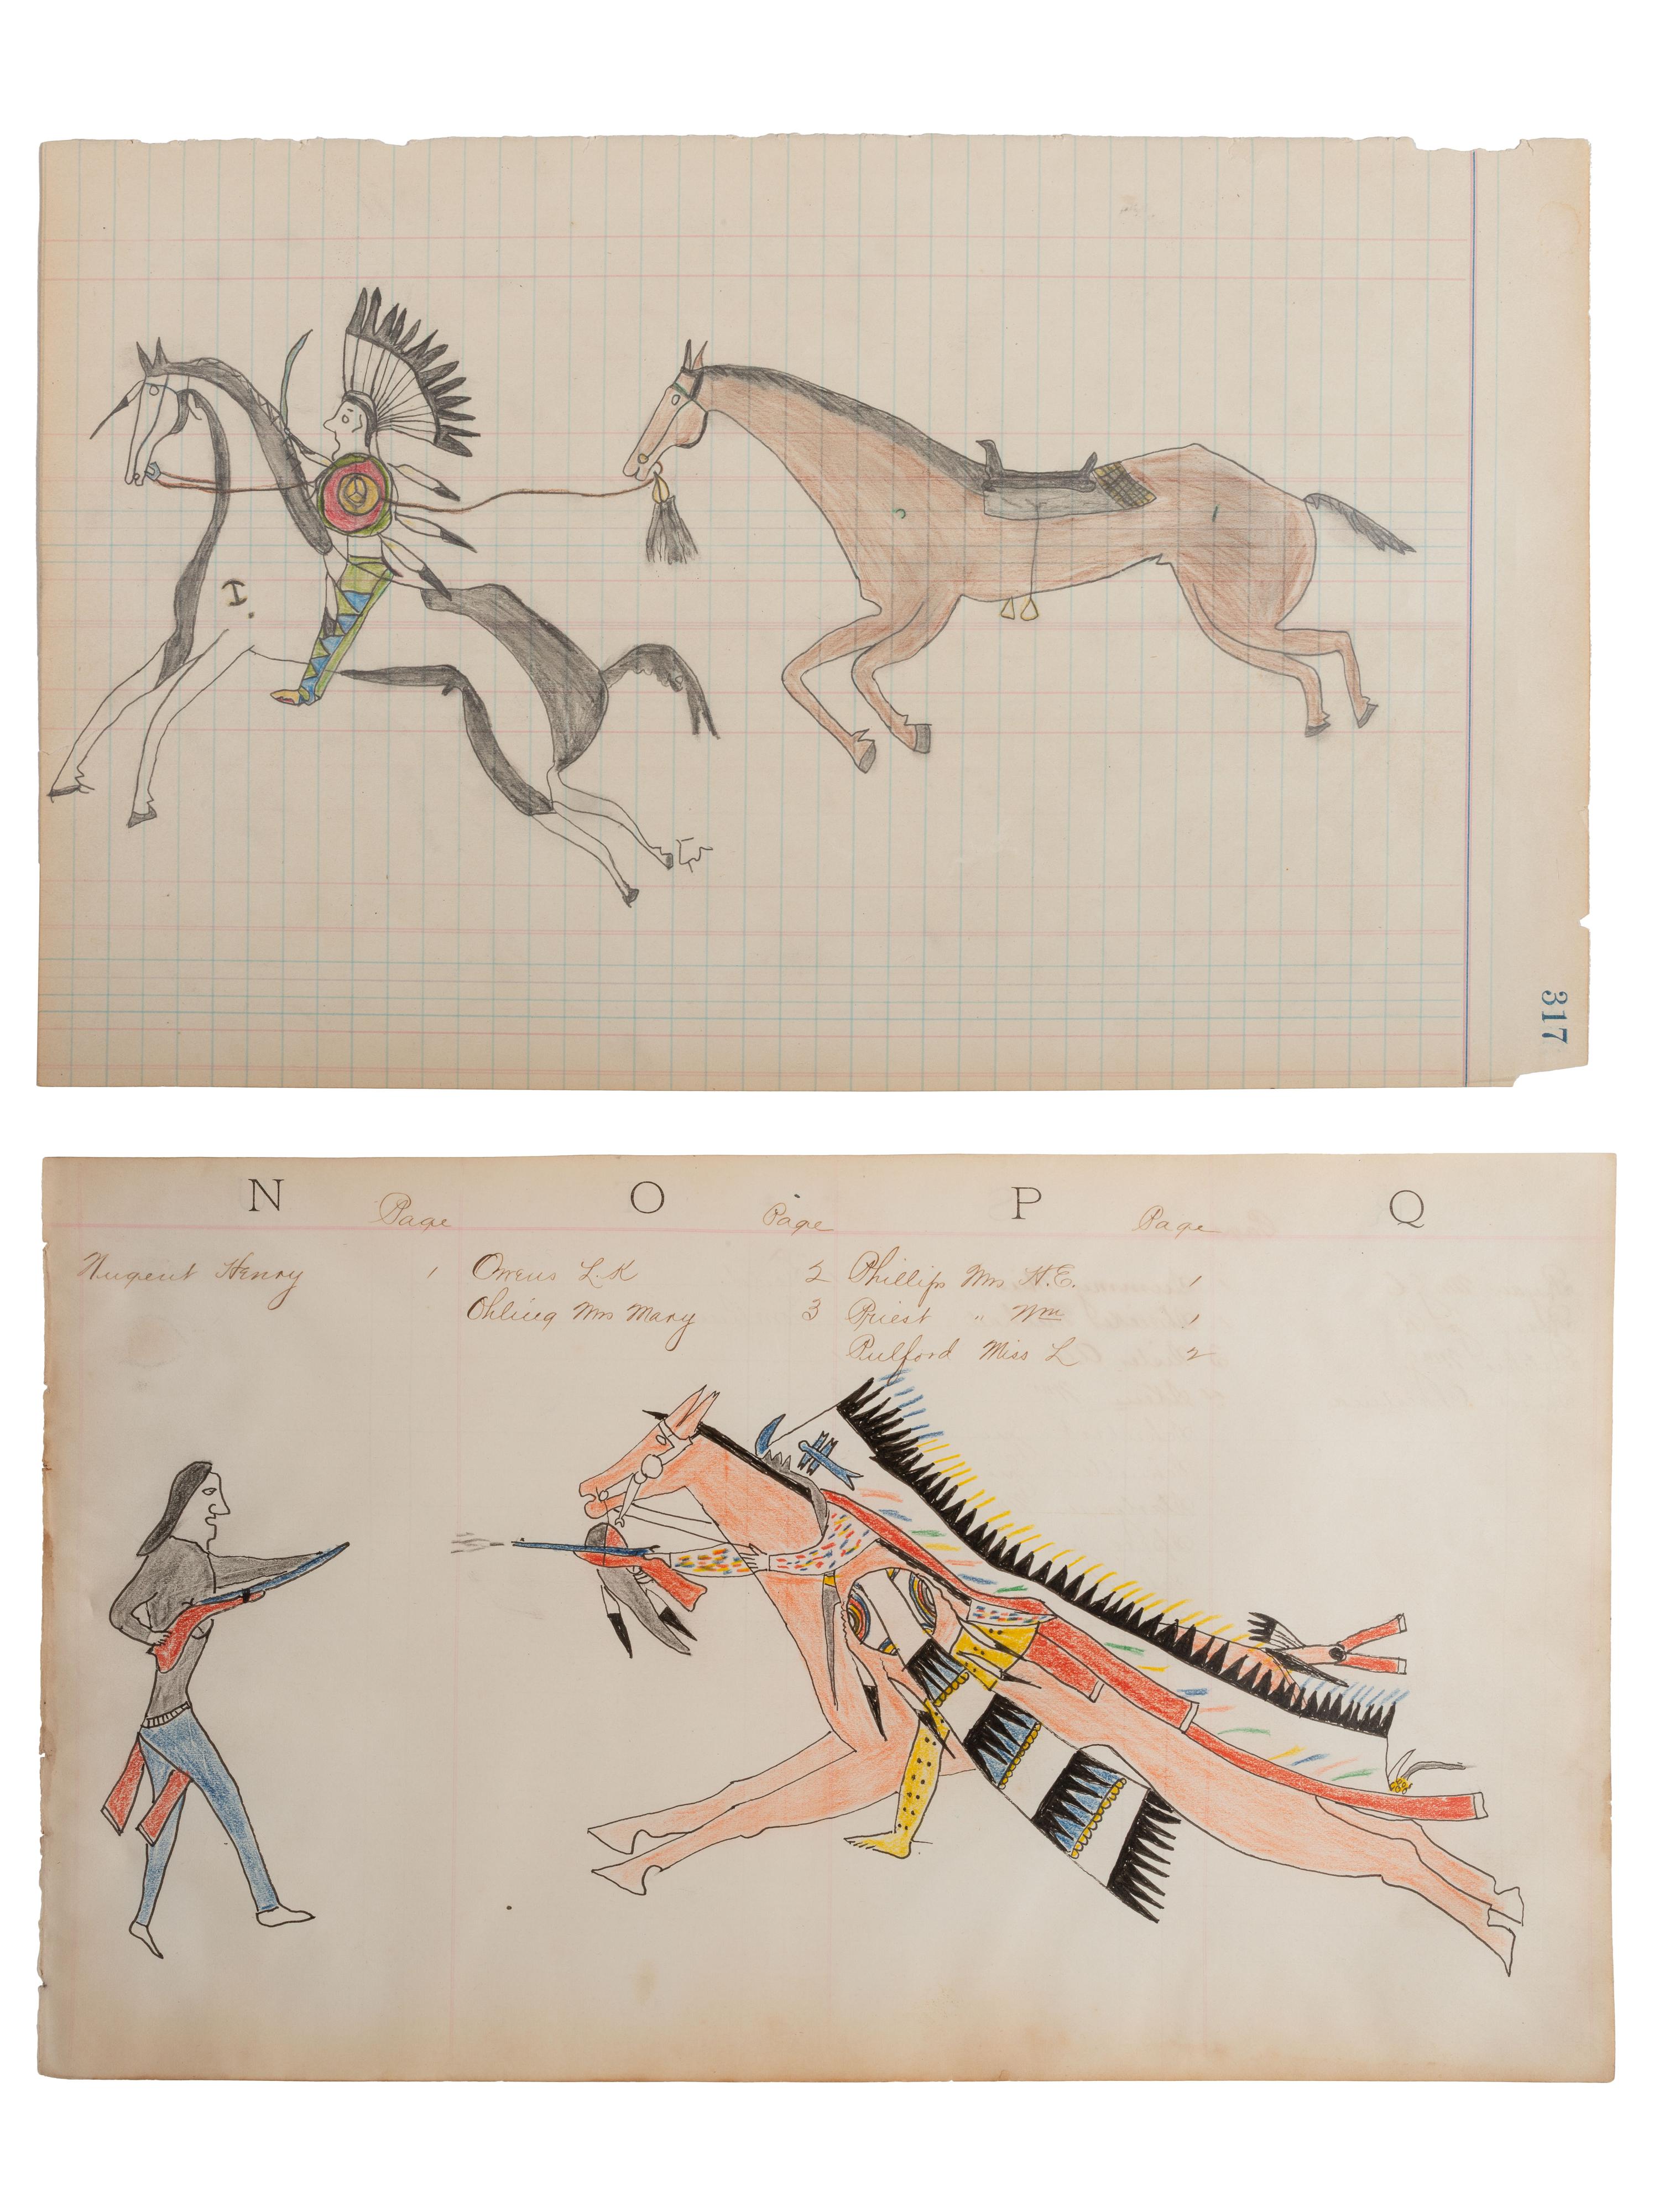 317
N Page O Page P Page Q
Nugent Henry 1 Owens L. K 2 Phillips Mrs H. E. 1
Ohling Mrs Mary 3 Priest " Wm 1
Pulford Miss L 2